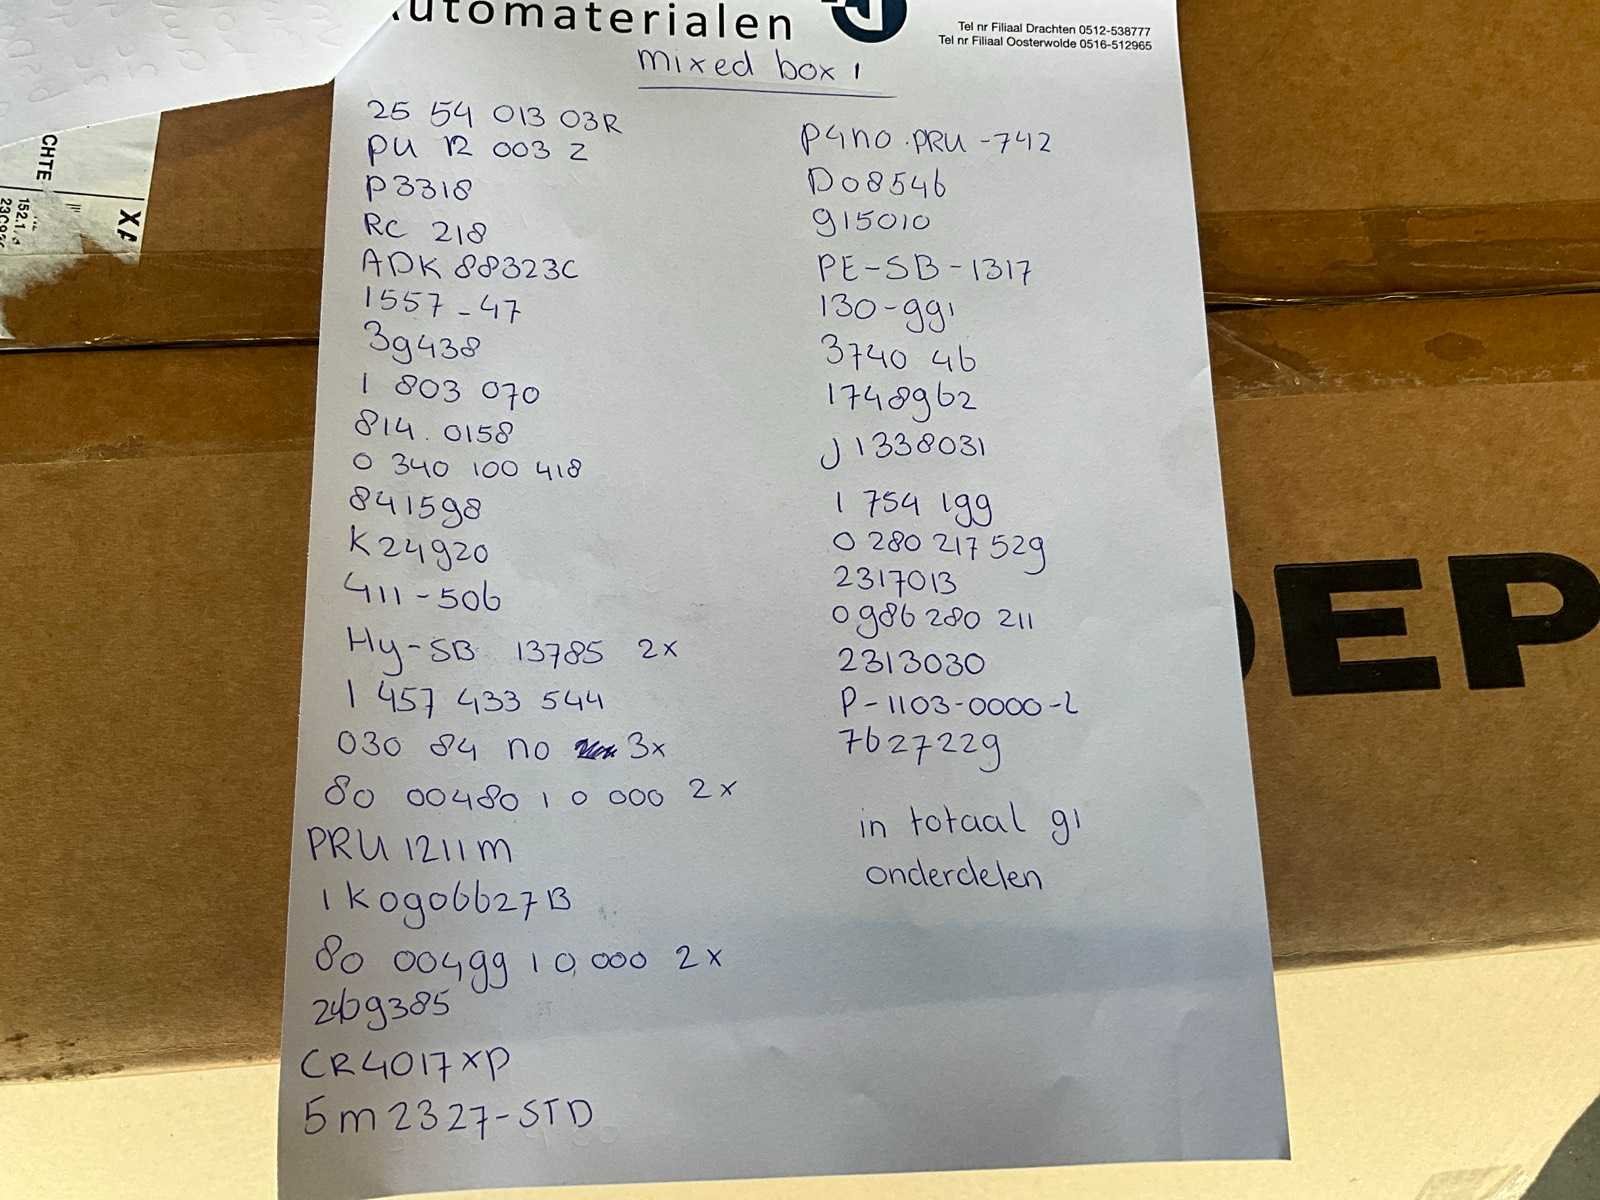 utomaterialen
Tel nr Filiaal Drachten 0512-538777
Tel nr Filiaal Oosterwolde 0516-512965
mixed box 1
25 54 013 03R
PU 12 003 Z
P3318
RC 218
ADK 88323C
1557-47
39438
1 803 070
814.0158
0 340 100 418
841598
K24920
411-506
Hy-SB 13785 2x
1 457 433 544
030 84 no 3x
80 00480 1 0 000 2x
PRU 1211m
1K0906627B
80 00499 1 0 000 2x
269385
CR4017XP
5m2327-STD
P4no.PRU-742
D08546
915010
PE-SB-1317
130-991
3740 46
1748962
J1338031
1 754 199
0 280 217 529
2317013
0986 280 211
2313030
P-1103-0000-L
7627229
in totaal 91
onderdelen
CHTE
XA
152.1
DEP